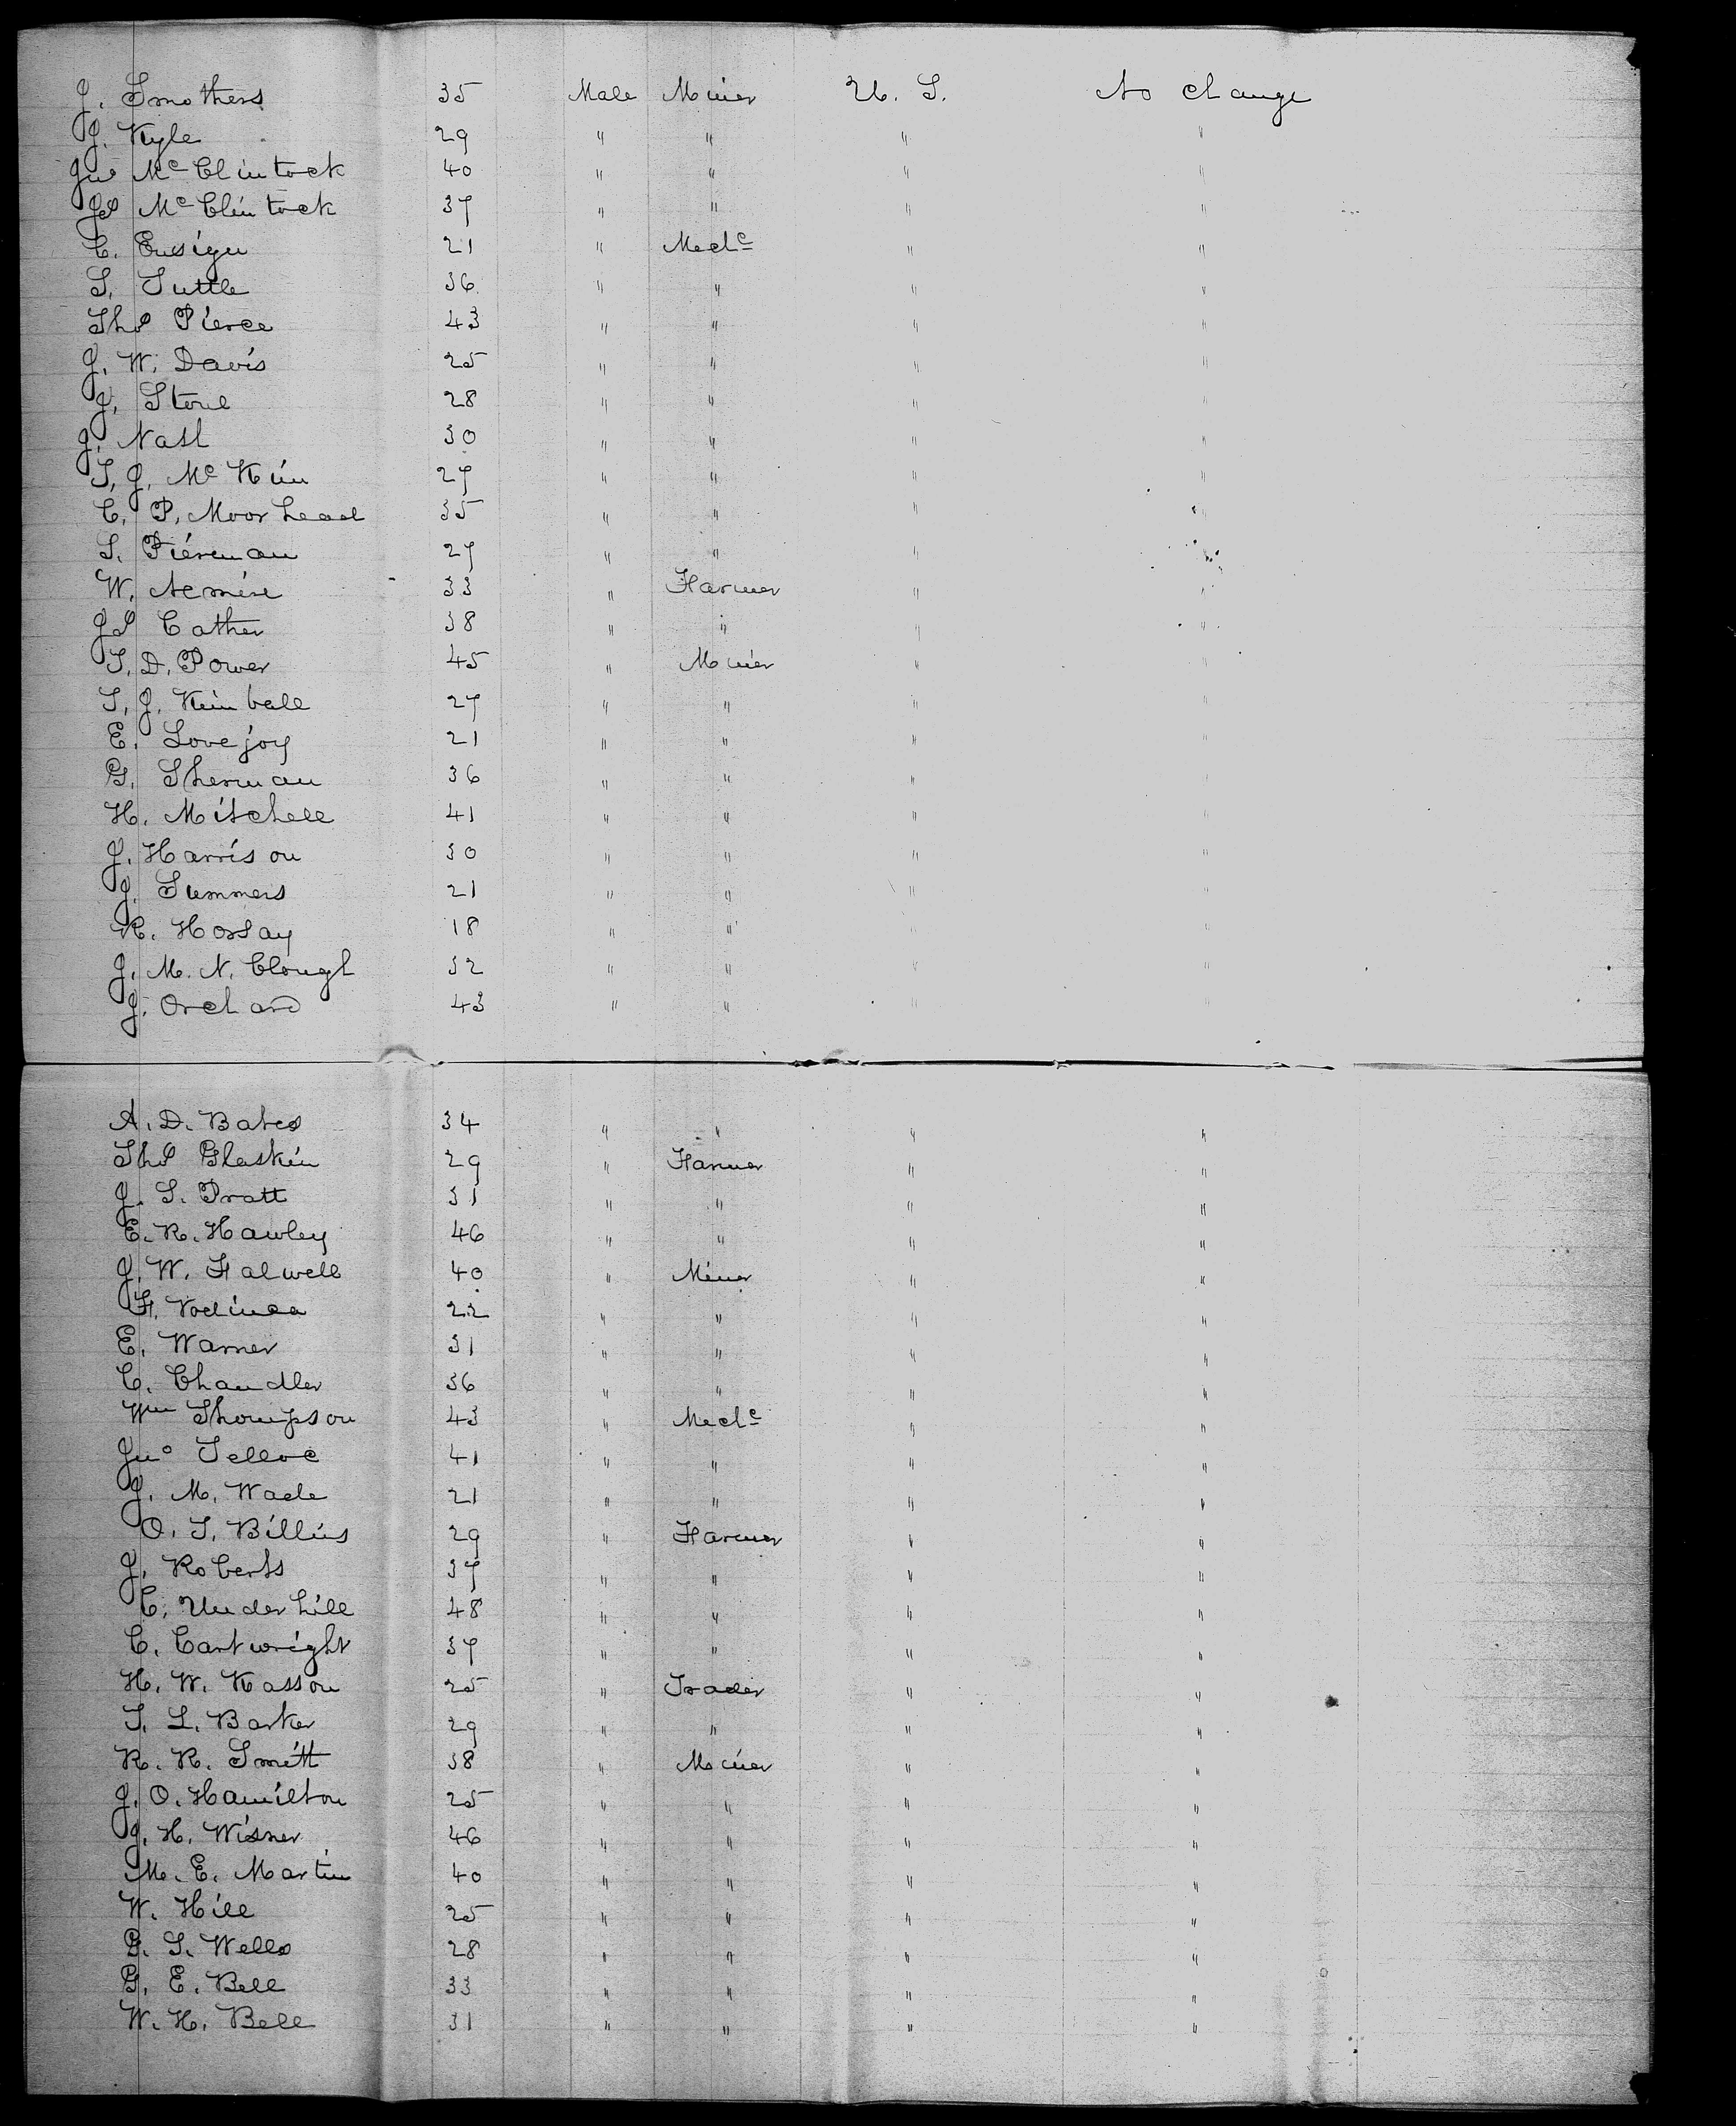 J. Smothers 35 Male Miner U. S. No change
J. Kyle 29 " " " "
Jno McClintock 40 " " " "
Js McClintock 37 " " " "
C. Ensign 21 " Mechc " "
S. Tuttle 36 " " " "
Thos Pierce 43 " " " "
J. W. Davis 25 " " " "
J. Stone 28 " " " "
J. Nash 30 " " " "
T. J. McKim 27 " " " "
C. P. Moorhead 35 " " " "
S. Piereman 27 " " " "
W. 33 " Farmer " "
Js Cather 38 " " " "
T. D. Power 45 " Miner " "
T. J. Kimball 27 " " " "
E. Lovejoy 21 " " " "
G. Sherman 36 " " " "
H. Mitchell 41 " " " "
J. Harrison 30 " " " "
J. Summers 21 " " " "
R. 18 " " " "
J. M. N. Clough 32 " " " "
J. Orchard 43 " " " "
A. D. Bates 34 " " " "
Thos Glaskin 29 " Farmer " "
J. S. Pratt 31 " " " "
E. R. Hawley 46 " " " "
J. W. Falwell 40 " Miner " "
F. 22 " " " "
E. Warner 31 " " " "
C. Chandler 36 " " " "
Wm Thompson 43 " Mechc " "
Jno 41 " " " "
J. M. Wade 21 " " " "
O. T. Billins 29 " Farmer " "
J. Roberts 37 " " " "
C. Underhill 48 " " " "
C. Cartwright 37 " " " "
H. W. Kasson 25 " Trader " "
T. L. Barker 29 " " " "
R. R. Smith 38 " Miner " "
J. O. Hamilton 25 " " " "
J. H. Wisner 46 " " " "
M. E. Martin 40 " " " "
W. Hill 25 " " " "
G. S. Wells 28 " " " "
G. E. Bell 33 " " " "
W. H. Bell 31 " " " "